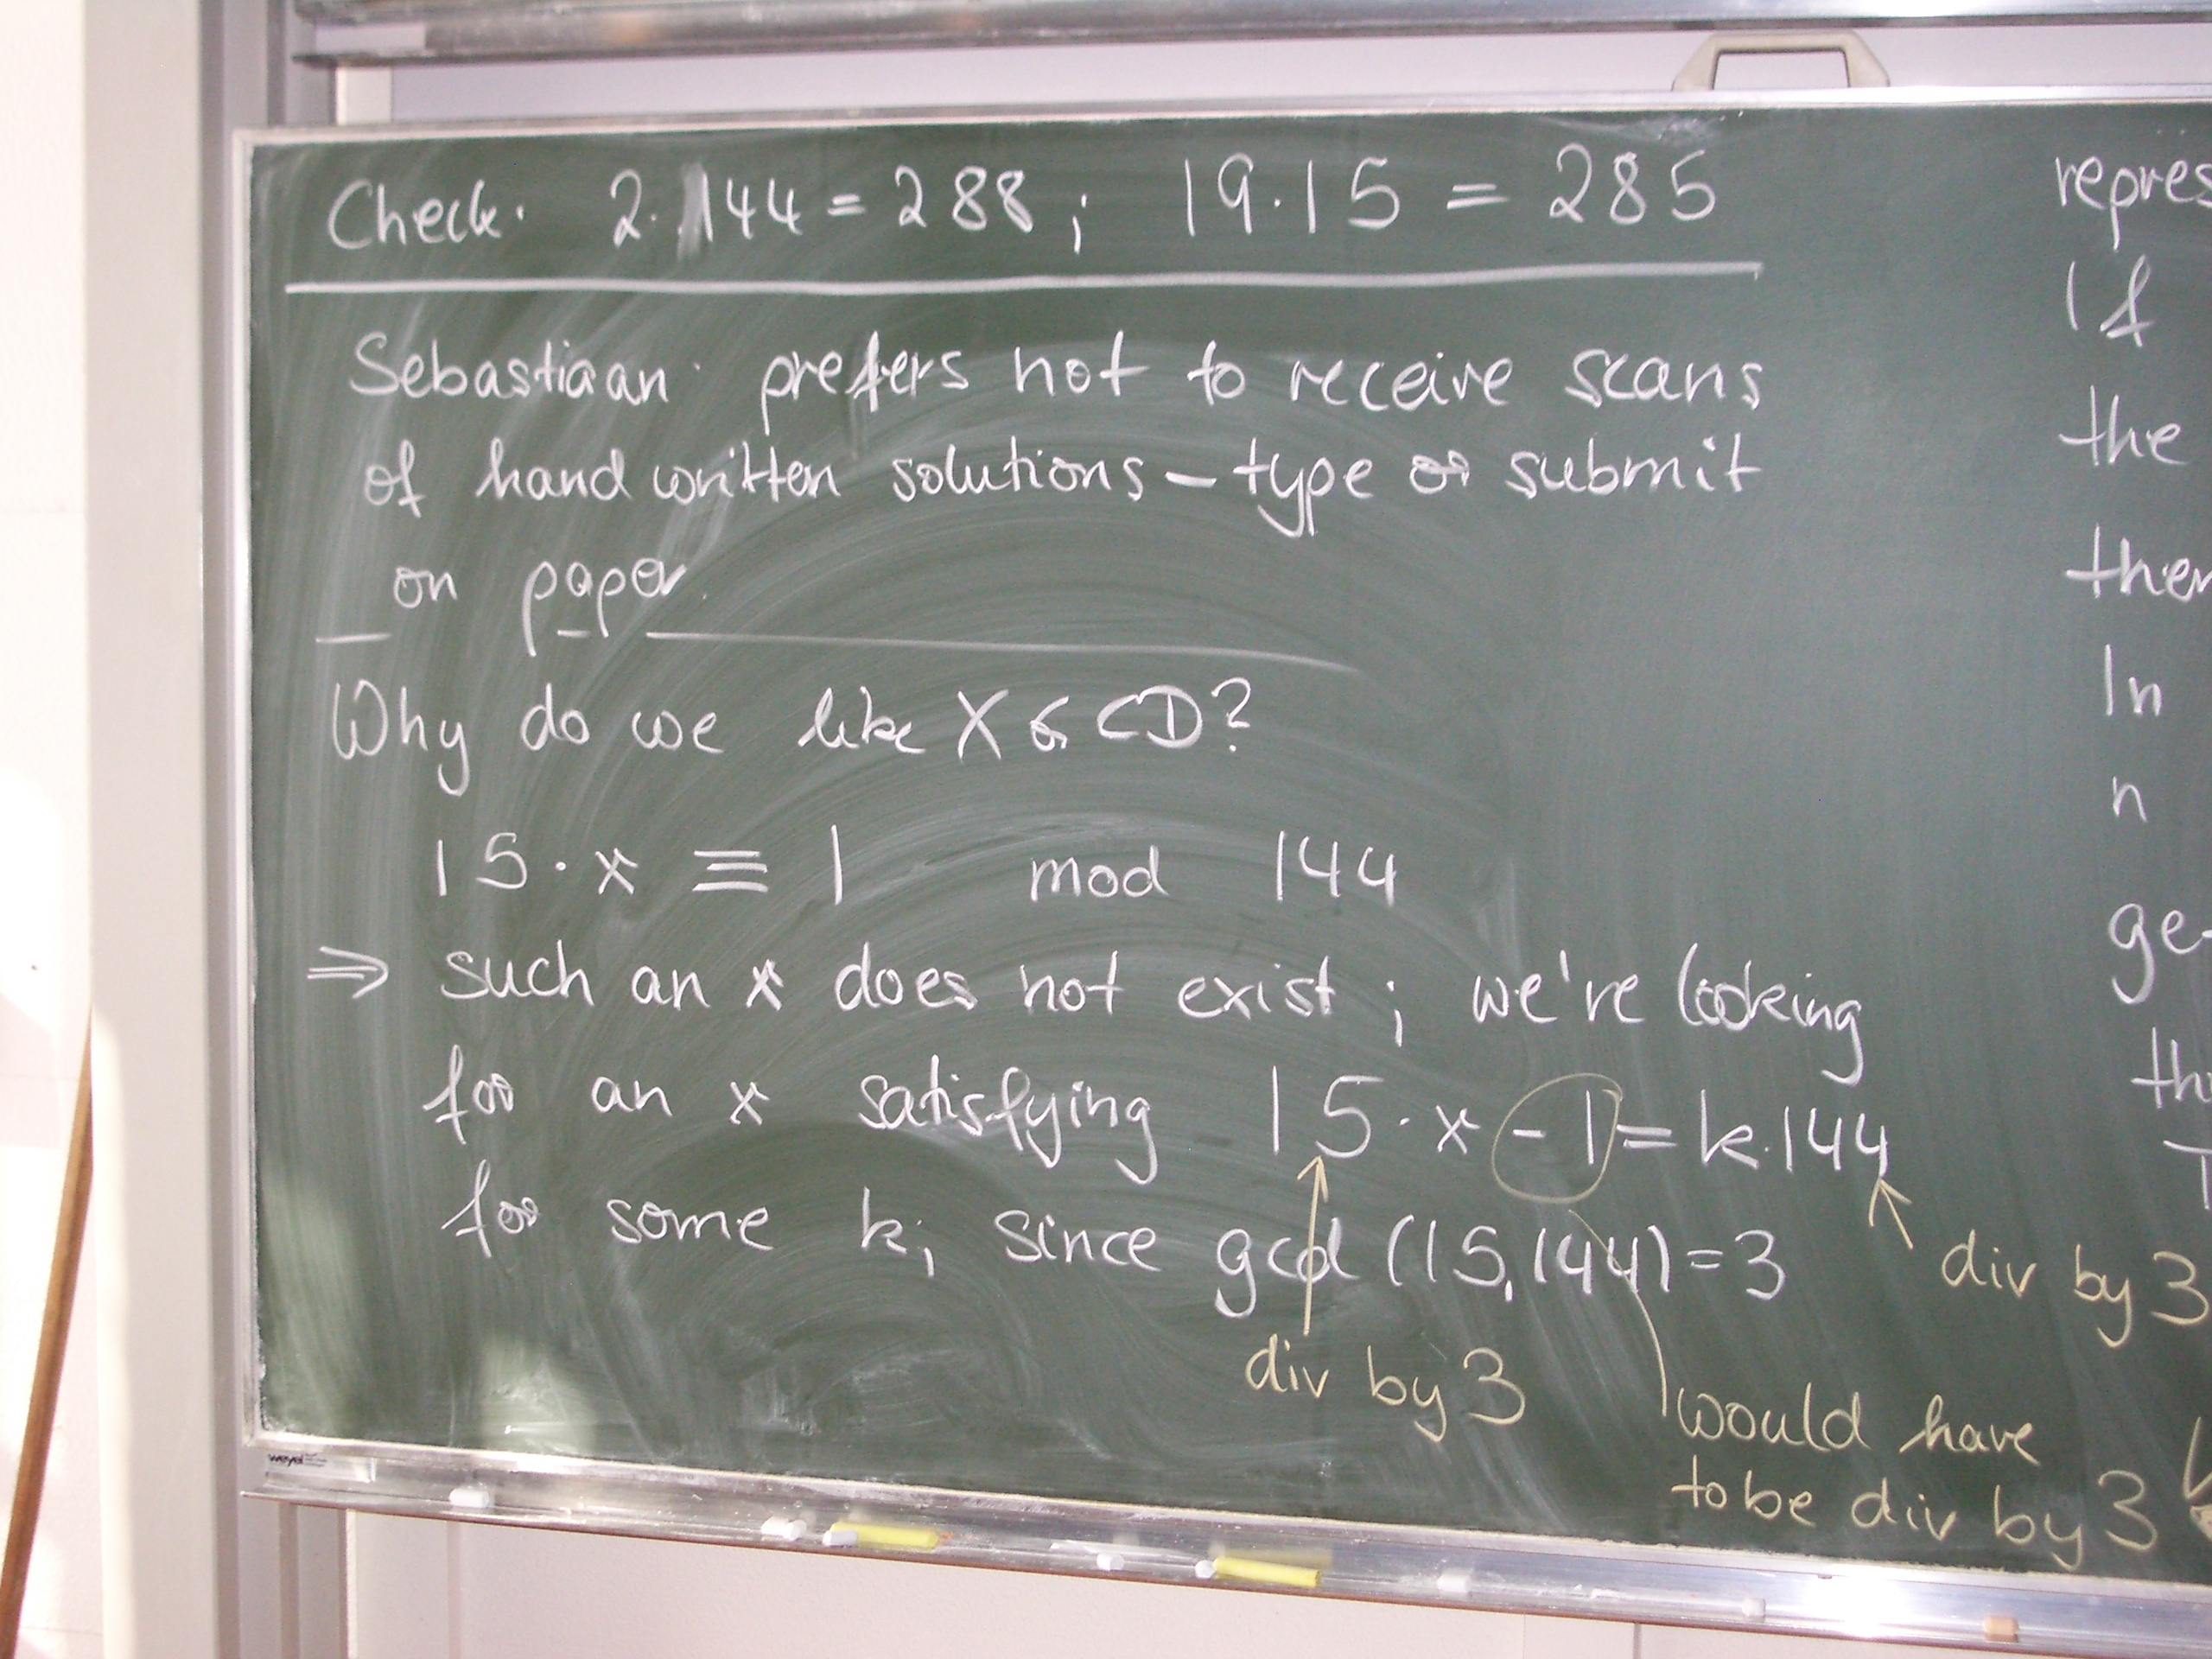 Check. 2.144 = 288 ; 19.15 = 285
Sebastiaan: prefers not to receive scans
of handwritten solutions - type or submit
on paper.
Why do we like XGCD?
15·x ≡ 1 mod 144
⇒ such an x does not exist ; we're looking
for an x satisfying 15·x - 1 = k·144
for some k; since gcd (15,144) = 3
div by 3
div by 3
would have
to be div by 3
repres
If
the
then
In
n
ge
th
T
weyel